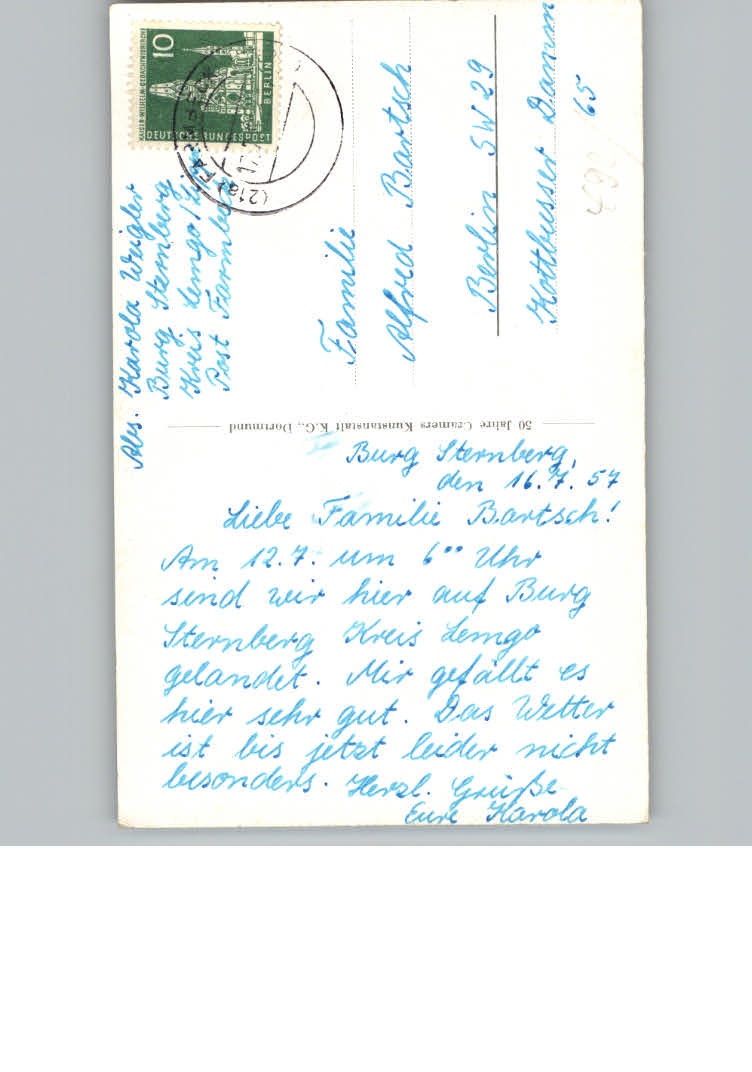 KAISER-WILHELM-GEDÄCHTNISKIRCHE
10
BERLIN
DEUTSCHE BUNDESPOST
(21a)
Abs. Karola Weigler
Burg Sternberg
Kreis Lemgo/Lippe
Post Farmbeck
Familie
Alfred Bartsch
Berlin SW 29
Kottbusser Damm
65
50 Jahre Cramers Kunstanstalt K.G., Dortmund
Burg Sternberg,
den 16.7.57
Liebe Familie Bartsch!
Am 12.7. um 6°° Uhr
sind wir hier auf Burg
Sternberg Kreis Lemgo
gelandet. Mir gefällt es
hier sehr gut. Das Wetter
ist bis jetzt leider nicht
besonders. Herzl. Grüße
Eure Karola